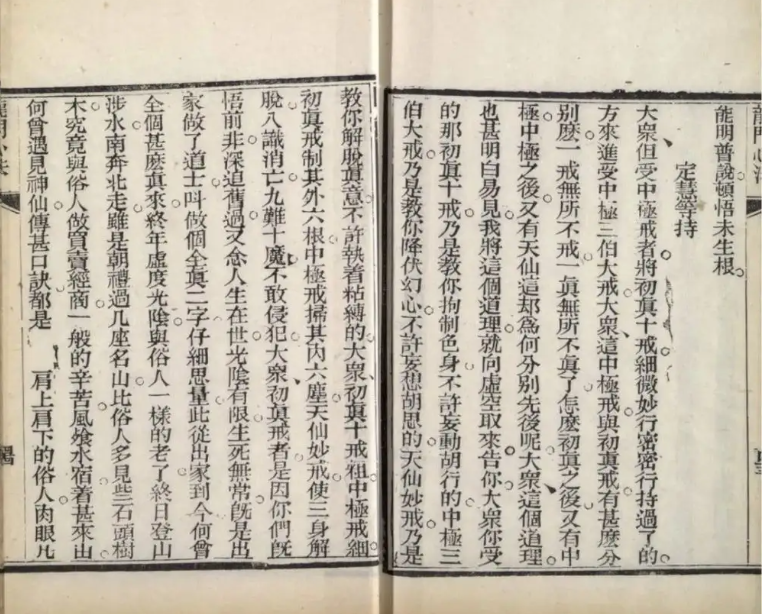 能明普說頓悟未生根
定慧等持
大衆但受中極戒者將初眞十戒細微妙行密密行持過了的
方來進受中極三伯大戒大衆這中極戒與初眞戒有甚麽分
別麽一戒無所不戒一眞無所不眞了怎麽初眞之後又有中
極中極之後又有天仙這却爲何分别先後呢大衆這個道理
也甚明白易見我將這個道理就向虛空取來告你大衆你受
的那初眞十戒乃是教你拘制色身不許妄動胡行的中極三
伯大戒乃是教你降伏幻心不許妄想胡思的天仙妙戒乃是
教你解脫眞意不許執着粘縛的大衆初眞十戒粗中極戒細
初眞戒制其外六根中極戒掃其内六塵天仙妙戒使三身解
脫八識消亡九難十魔不敢侵犯大衆初眞戒者是因你們旣
悟前非深追舊過又念人生在世光陰有限生死無常旣是出
家做了道士呌做個全眞二字仔細思量此從出家到今何曾
全個甚麽眞來終年虛度光陰與俗人一樣的老了終日登山
涉水南奔北走雖是朝禮過几座名山比俗人多見些石頭樹
木究竟與俗人做買賣經商一般的辛苦風飡水宿着甚來由
何曾遇見神仙傳甚口訣都是 肩上肩下的俗人肉眼凡
龍門心法